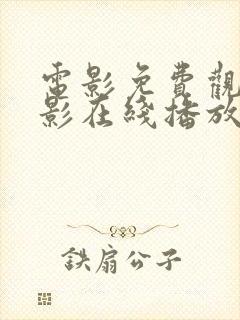 電影免費觀
影在綫播放
鉄扇公子